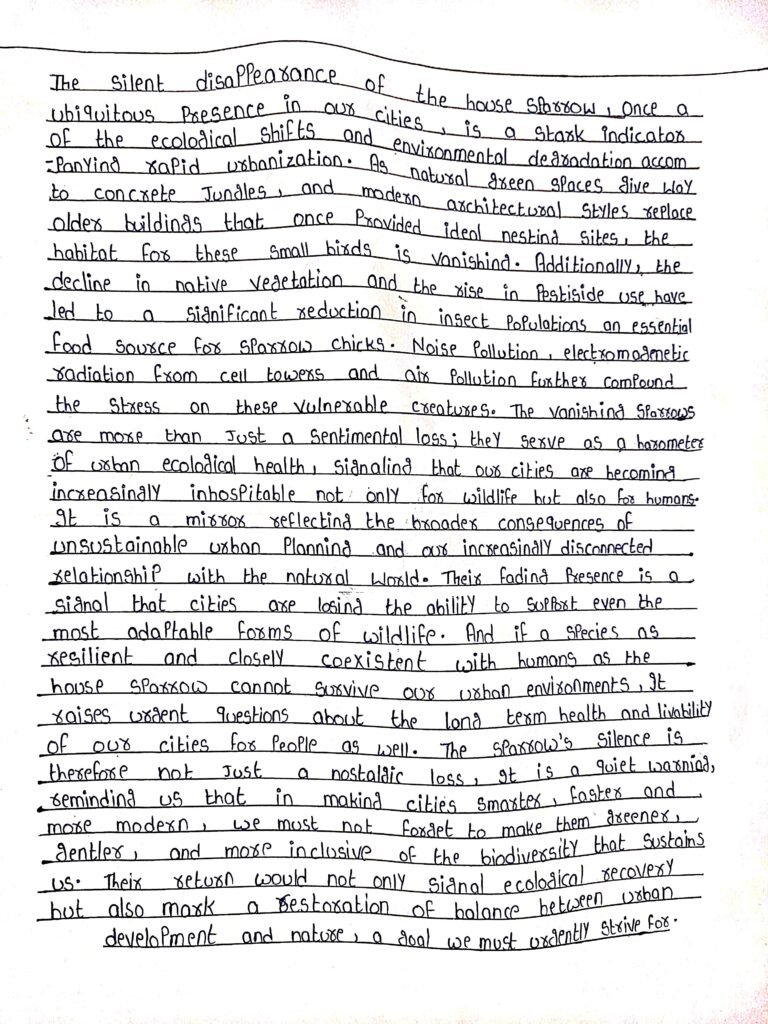 The silent disappearance of the house sparrow, once a
ubiquitous presence in our cities, is a stark indicator
of the ecological shifts and environmental degradation accom
-panying rapid urbanization. As natural green spaces give way
to concrete Jungles, and modern architectural styles replace
older buildings that once provided ideal nesting sites, the
habitat for these small birds is vanishing. Additionally, the
decline in native vegetation and the rise in Pestiside use have
led to a significant reduction in insect populations an essential
food source for sparrow chicks. Noise pollution, electromagenetic
radiation from cell towers and air pollution further compound
the stress on these vulnerable creatures. The vanishing sparrows
are more than Just a sentimental loss; they serve as a barometer
of urban ecological health, signaling that our cities are becoming
increasingly inhospitable not only for wildlife but also for humans.
It is a mirror reflecting the broader consequences of
unsustainable urban planning and our increasingly disconnected
relationship with the natural world. Their fading presence is a
signal that cities are losing the ability to support even the
most adaptable forms of wildlife. And if a species as
resilient and closely coexistent with humans as the
house sparrow cannot survive our urban environments, It
raises urgent questions about the long term health and livability
of our cities for people as well. The sparrow's silence is
therefore not Just a nostalgic loss, It is a quiet warning,
reminding us that in making cities smarter, faster and
more modern, we must not forget to make them greener,
gentler, and more inclusive of the biodiversity that sustains
us. Their return would not only signal ecological recovery
but also mark a restoration of balance between urban
development and nature, a goal we must urgently strive for.